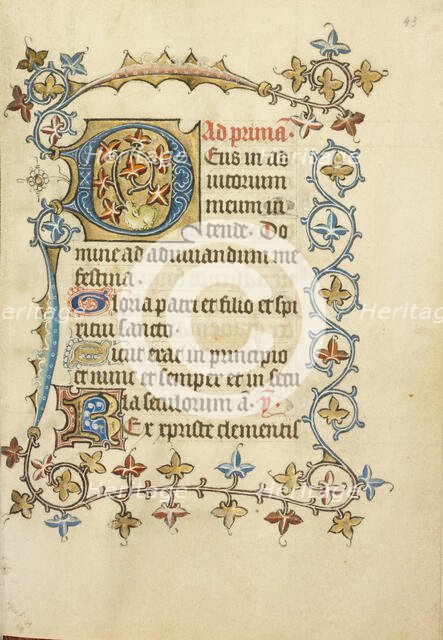 43
Ad prima
Deus in ad
iutorium
meum in
tende. Do
mine ad adiuuandum me
festina.
Gloria patri et filio et spi
ritui sancto.
Sicut erat in principio
et nunc et semper et in secu
la seculorum a.
Rex xpriste clementis
Heritage
Heritage
Heritage
Heritage
Heritage
Heritage